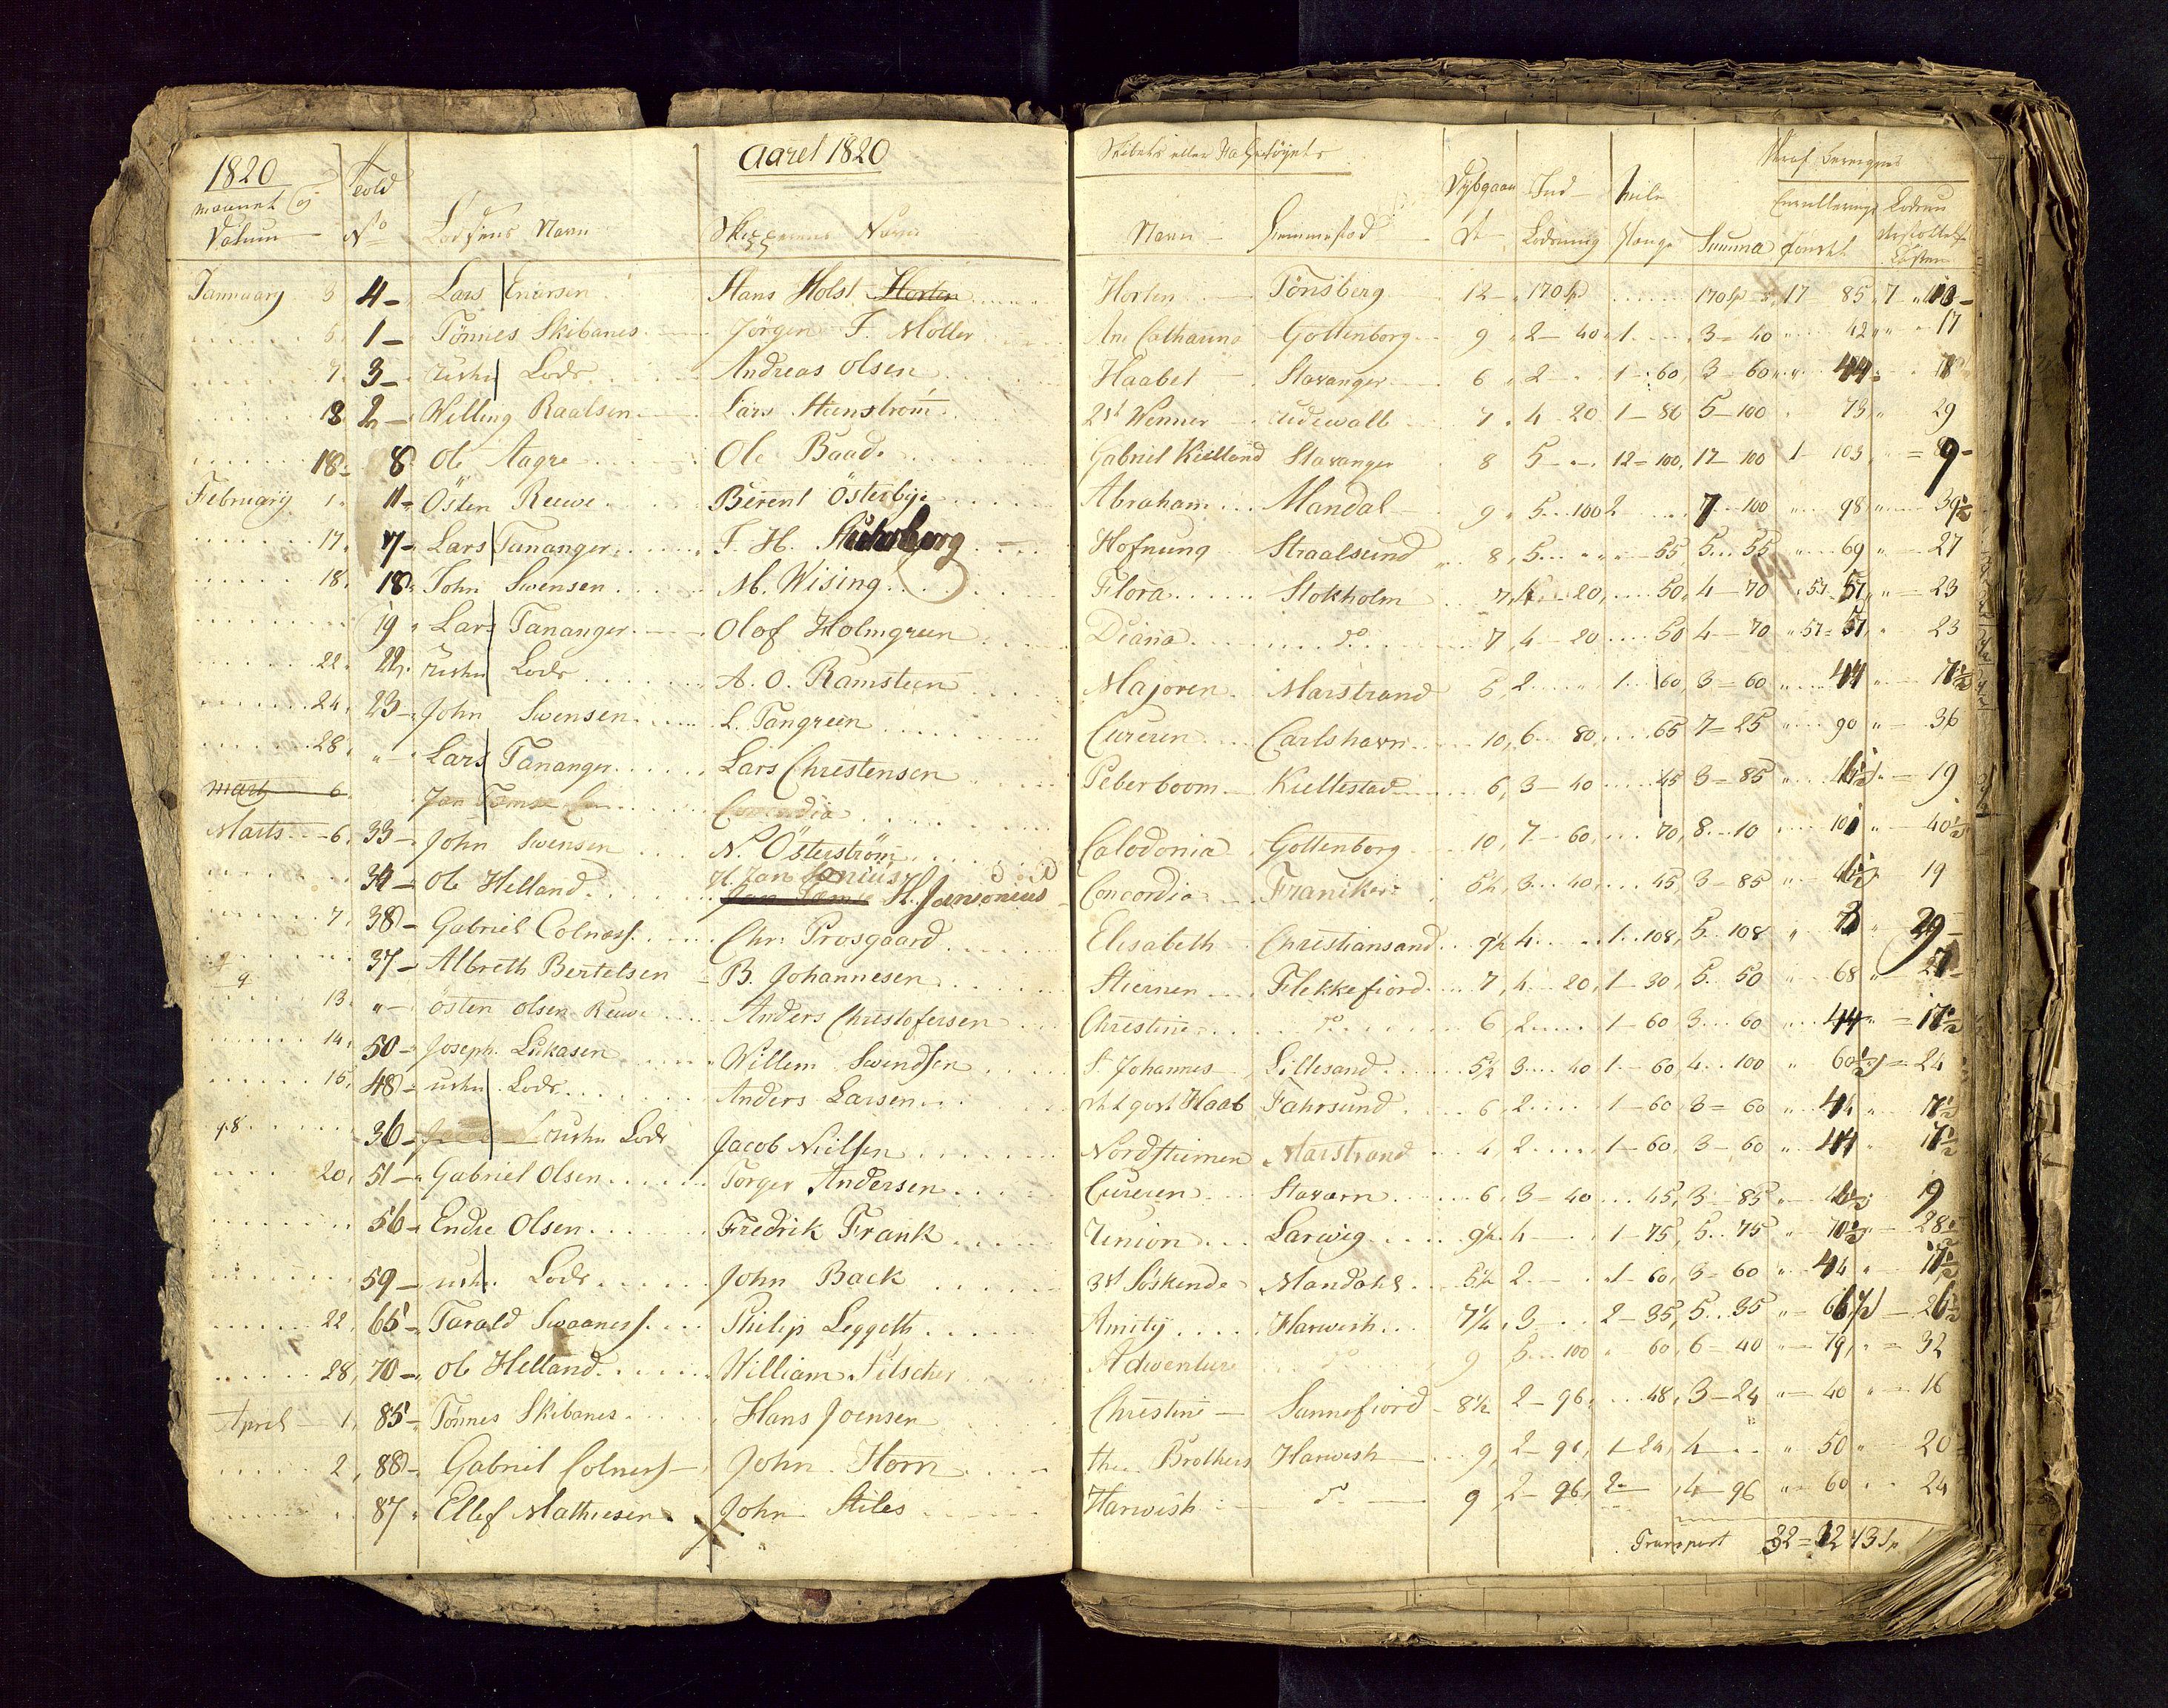 1820 Aaret 1820
Maanet og Datum Told No Lodsens Navn Skipperens Navn
January 3 4 Lars Enersen Hans Holst Horten
5 1 Tönnes Skibanes Jörgen F. Moller
9 3 Lods Andreas Olsen
13 2 Welling Raalsen Lars Steenstrom
18 8 Ole Aagre Ole Baade
February 1 11 Östen Reewe Berent Österbye
17 7 Lars Tananger F. H.
18 18 John Swensen M. Wising
19 Lars Tananger Olof Holmgreen
22 22 Lods A. O. Ramsteen
24 23 John Swensen L. Tangreen
28 " Lars Tananger Lars Christensen
Marty 6 Concordia
Marts 6 33 John Swensen N. Österström
H. Jan Jonius
34 Ole Helland H. Jansonius
7 38 Gabriel Colness Chr. Prosgaard
9 37 Albreth Bertelsen B. Johannesen
13 " Östen Olsen Reewe Anders Christofersen
14 50 Joseph Lukasen Willem Swendsen
15 48 Lods Anders Larsen
18 36 Lods Jacob Nielsen
20 51 Gabriel Olsen Torger Andersen
56 Endre Olsen Fredrik Frank
59 Lods John Back
22 65 Tarald Swaaness Philip Leggeth
28 70 Ole Helland William Pilscher
April 1 85 Tönnes Skibanes Hans Joensen
2 88 Gabriel Colness John Horn
87 Ellef Mathiesen John Stiles
Skibets eller Fartöyets
Navn Hiemmestad Dybgaaende Ind Lodsning Summa
Horten Tönsberg 12 170 sp 170 sp 17 85 7
An. Catharina Gottenborg 9 2 40 1 3 40 42 17
Haabet Stavanger 6 2 1 60 3 60 44
2de Wenner Udewall 7 4 20 1 80 5 100 73 29
Gabriel Kielland Stavanger 8 5 12 100 17 100 1 103
Abraham Mandal 9 5 100 2 7 100 98 39½
Hofnung Straalsund 8 5 55 5 55 69 27
Flora Stokholm 7 4 20 50 4 70 57 57 23
Diana do 7 4 20 50 4 70 57 57 23
Majoren Marstrand 5 2 1 60 3 60 44 17½
Cureren Carlshavn 10 6 80 65 7 25 90 36
Peberboom Kiellestad 6 3 40 45 3 85 19
Calodonia Gottenborg 10 7 60 70 8 10 101 40½
Concordia Franiker 5½ 3 40 45 3 85 19
Elisabeth Christiansand 9½ 4 1 108 5 108 29
Stiernen Flekkefiord 7 4 20 1 30 5 50 68
Christine do 6 2 1 60 3 60 44 17½
St Johannes Lillesand 5½ 3 40 1 60 4 100 60½ 24
Haab Fahrsund 6 2 1 60 3 60 44 17½
Nordstiernen Marstrand 4 2 1 60 3 60 44 17½
Cureren Stavarn 6 3 40 45 3 85 19
Union Larwig 9½ 4 1 75 5 75 70½ 28½
3de Söskende Mandahl 5½ 2 1 60 3 60 44 17½
Amity Harwish 7½ 3 2 35 5 35 66½ 26½
Adwenture do 9 5 100 60 6 40 79 32
Christine Sannefiord 8½ 2 96 48 3 24 40 16
the Brothers Harwish 9 2 96 1 24 4 50 20
Harwish do 9 2 96 2 4 96 60 24
Transport 32 = 32 43 sp